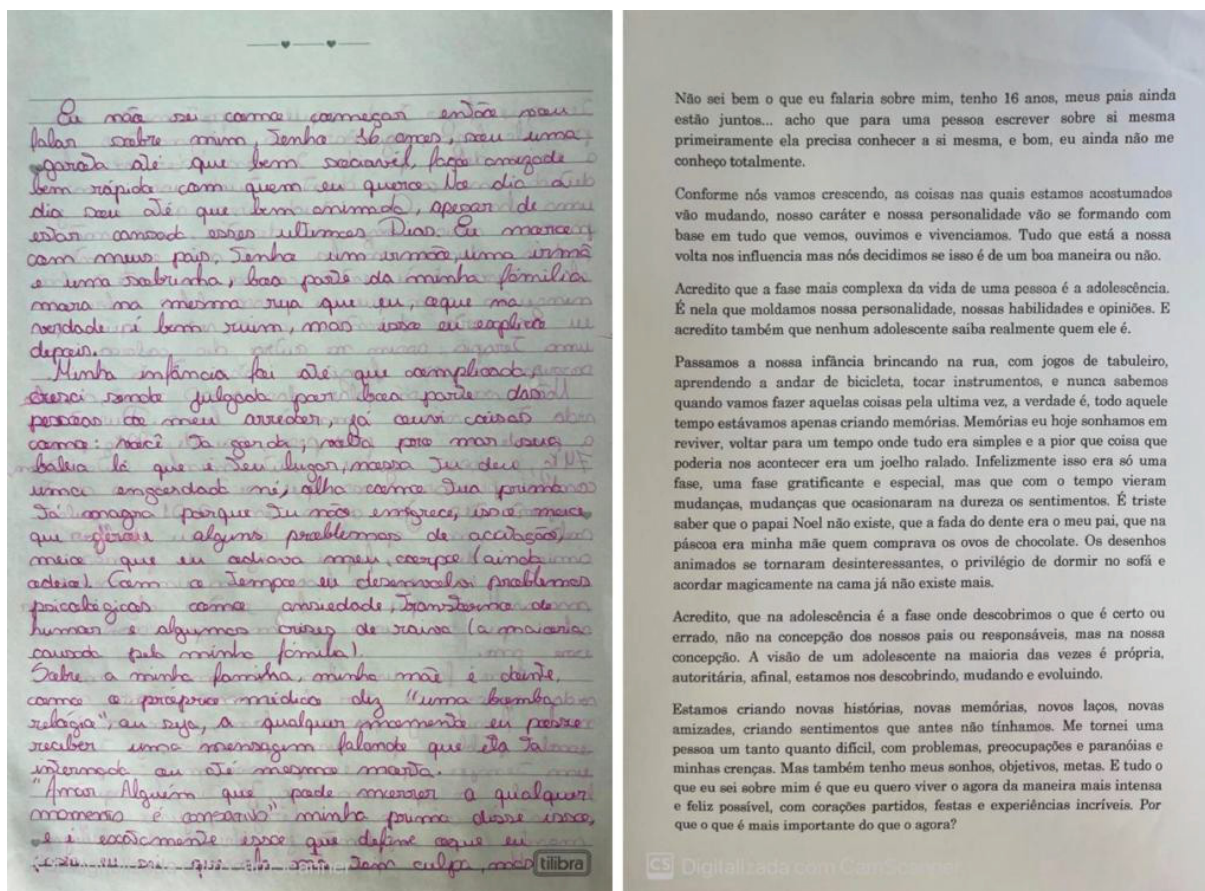 Eu não sei como começar então vou
falar sobre mim Tenho 16 anos, sou uma
garota até que bem sociavél, faço amizade
bem rápido com quem eu quero. No dia a
dia sou até que bem animada, apesar de
estar cansada esses ultimos Dias. Eu moro
com meus pais, Tenho um irmão, uma irmã
e uma sobrinha, boa parte da minha fámilia
mora na mesma rua que eu, oque na
verdade é bem ruim, mas isso eu explico
depois.
Minha infância foi até que complicada,
cresci sendo julgada por boa parte das
pessoas do meu arredor, já ouvi coisas
como: você Ta gorda; volta pro mar sua
baleia lá que é seu lugar, nossa Tu deu
uma engordada né, olha como Tua prima
Tá magra porque Tu não emgrece, isso meio
que gerou alguns problemas de aceitação,
meio que eu odiava meu corpo (ainda
odeio). Com o Tempo eu desenvolvi problemas
psicológicos como ansiedade, Transtorno de
humor e algumas crises de raiva (a maioria
causada pela minha fámilia).
Sobre a minha família, minha mãe é doente,
como o próprio médico diz "uma bomba
relogio", ou seja, a qualquer momento eu posso
receber uma mensagem falando que ela Ta
internada ou até mesmo morta.
"Amar Alguém que pode morrer a qualquer
momento é cansativo" minha prima disse isso,
e é exatamente isso que define oque eu
eu sei que ela não Tem culpa, mas
tilibra
Não sei bem o que eu falaria sobre mim, tenho 16 anos, meus pais ainda
estão juntos... acho que para uma pessoa escrever sobre si mesma
primeiramente ela precisa conhecer a si mesma, e bom, eu ainda não me
conheço totalmente.
Conforme nós vamos crescendo, as coisas nas quais estamos acostumados
vão mudando, nosso caráter e nossa personalidade vão se formando com
base em tudo que vemos, ouvimos e vivenciamos. Tudo que está a nossa
volta nos influencia mas nós decidimos se isso é de um boa maneira ou não.
Acredito que a fase mais complexa da vida de uma pessoa é a adolescência.
É nela que moldamos nossa personalidade, nossas habilidades e opiniões. E
acredito também que nenhum adolescente saiba realmente quem ele é.
Passamos a nossa infância brincando na rua, com jogos de tabuleiro,
aprendendo a andar de bicicleta, tocar instrumentos, e nunca sabemos
quando vamos fazer aquelas coisas pela ultima vez, a verdade é, todo aquele
tempo estávamos apenas criando memórias. Memórias eu hoje sonhamos em
reviver, voltar para um tempo onde tudo era simples e a pior que coisa que
poderia nos acontecer era um joelho ralado. Infelizmente isso era só uma
fase, uma fase gratificante e especial, mas que com o tempo vieram
mudanças, mudanças que ocasionaram na dureza os sentimentos. É triste
saber que o papai Noel não existe, que a fada do dente era o meu pai, que na
páscoa era minha mãe quem comprava os ovos de chocolate. Os desenhos
animados se tornaram desinteressantes, o privilégio de dormir no sofá e
acordar magicamente na cama já não existe mais.
Acredito, que na adolescência é a fase onde descobrimos o que é certo ou
errado, não na concepção dos nossos pais ou responsáveis, mas na nossa
concepção. A visão de um adolescente na maioria das vezes é própria,
autoritária, afinal, estamos nos descobrindo, mudando e evoluindo.
Estamos criando novas histórias, novas memórias, novos laços, novas
amizades, criando sentimentos que antes não tínhamos. Me tornei uma
pessoa um tanto quanto difícil, com problemas, preocupações e paranóias e
minhas crenças. Mas também tenho meus sonhos, objetivos, metas. E tudo o
que eu sei sobre mim é que eu quero viver o agora da maneira mais intensa
e feliz possível, com corações partidos, festas e experiências incríveis. Por
que o que é mais importante do que o agora?
CS Digitalizada com CamScanner